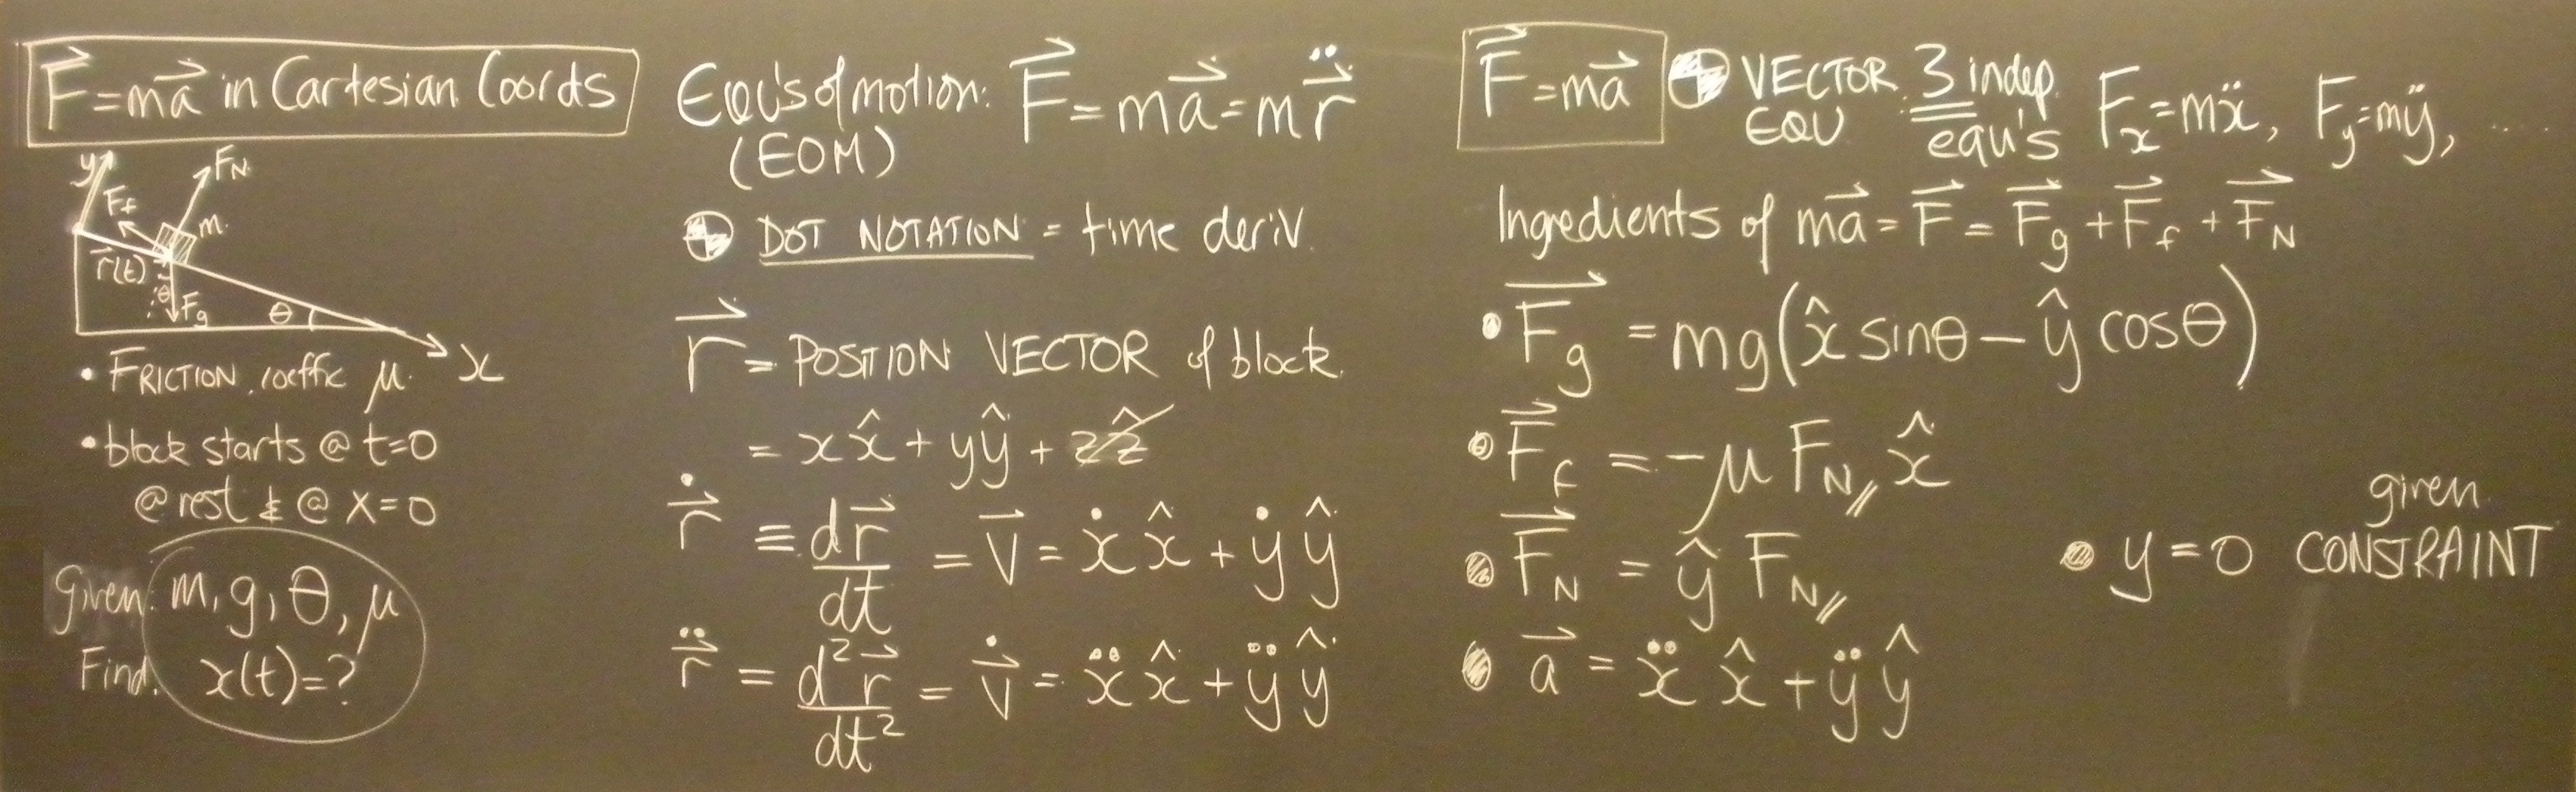 F⃗ = ma⃗ in Cartesian Coords
y
F_N
F_f
m
r⃗(t)
θ
F_g
θ
x
• FRICTION, coeffic μ.
• block starts @ t=0
@ rest & @ x=0
Given: m, g, θ, μ
Find: x(t)=?
EQU'S of motion: F⃗ = ma⃗ = m r⃗̈
(EOM)
DOT NOTATION = time deriv.
r⃗ = POSITION VECTOR of block.
= x x̂ + y ŷ + z ẑ
r⃗̇ ≡ dr⃗/dt = v⃗ = ẋ x̂ + ẏ ŷ
r⃗̈ = d²r⃗/dt² = v⃗̇ = ẍ x̂ + ÿ ŷ
F⃗ = ma⃗ VECTOR EQU : 3 indep. equ's F_x = mẍ, F_y = mÿ, ....
Ingredients of ma⃗ = F⃗ = F⃗_g + F⃗_f + F⃗_N
• F⃗_g = mg(x̂ sinθ − ŷ cosθ)
• F⃗_f = −μ F_N x̂
• F⃗_N = ŷ F_N
• y = 0 given CONSTRAINT
• a⃗ = ẍ x̂ + ÿ ŷ